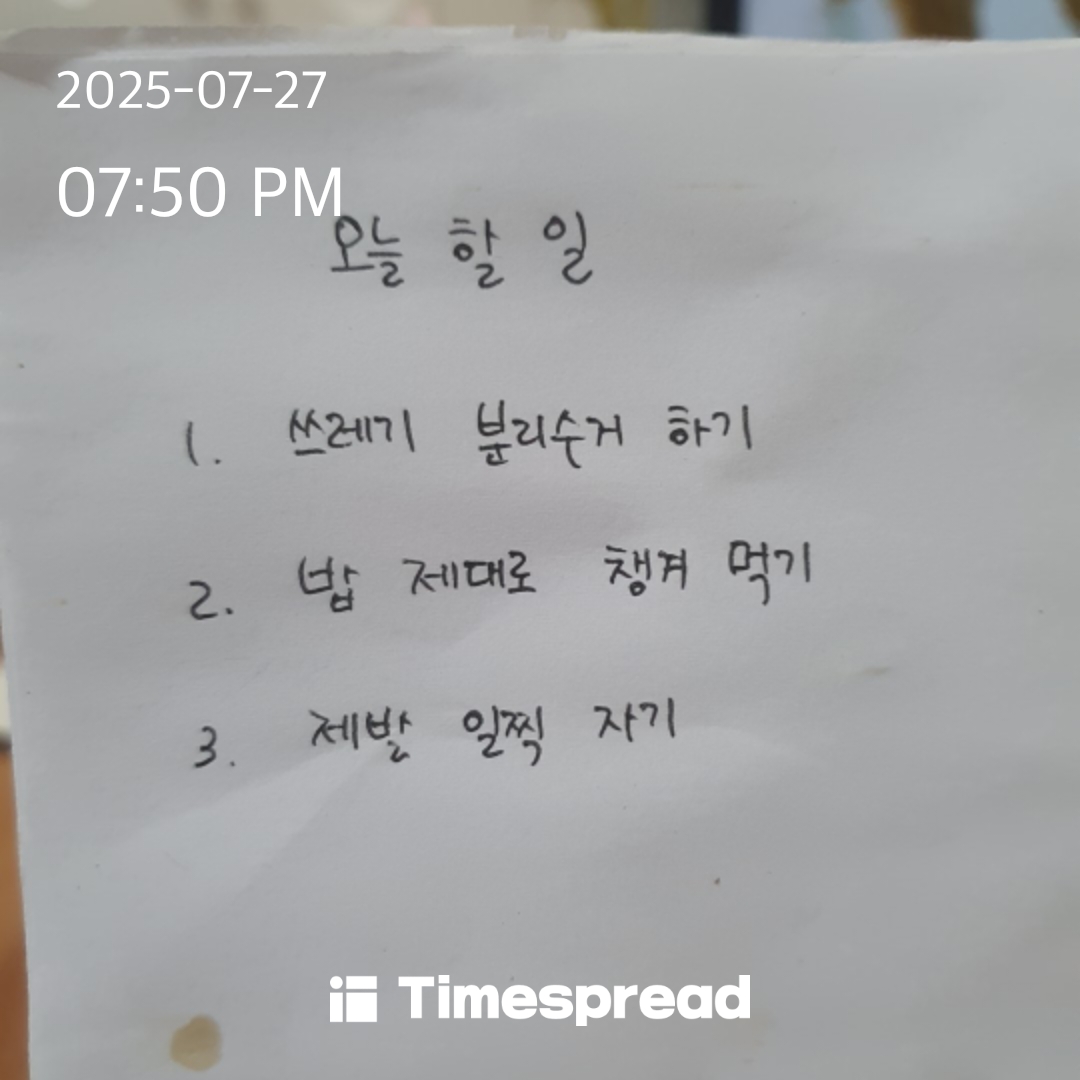 2025-07-27
07:50 PM
오늘 할 일
1. 쓰레기 분리수거 하기
2. 밥 제대로 챙겨 먹기
3. 제발 일찍 자기
Timespread